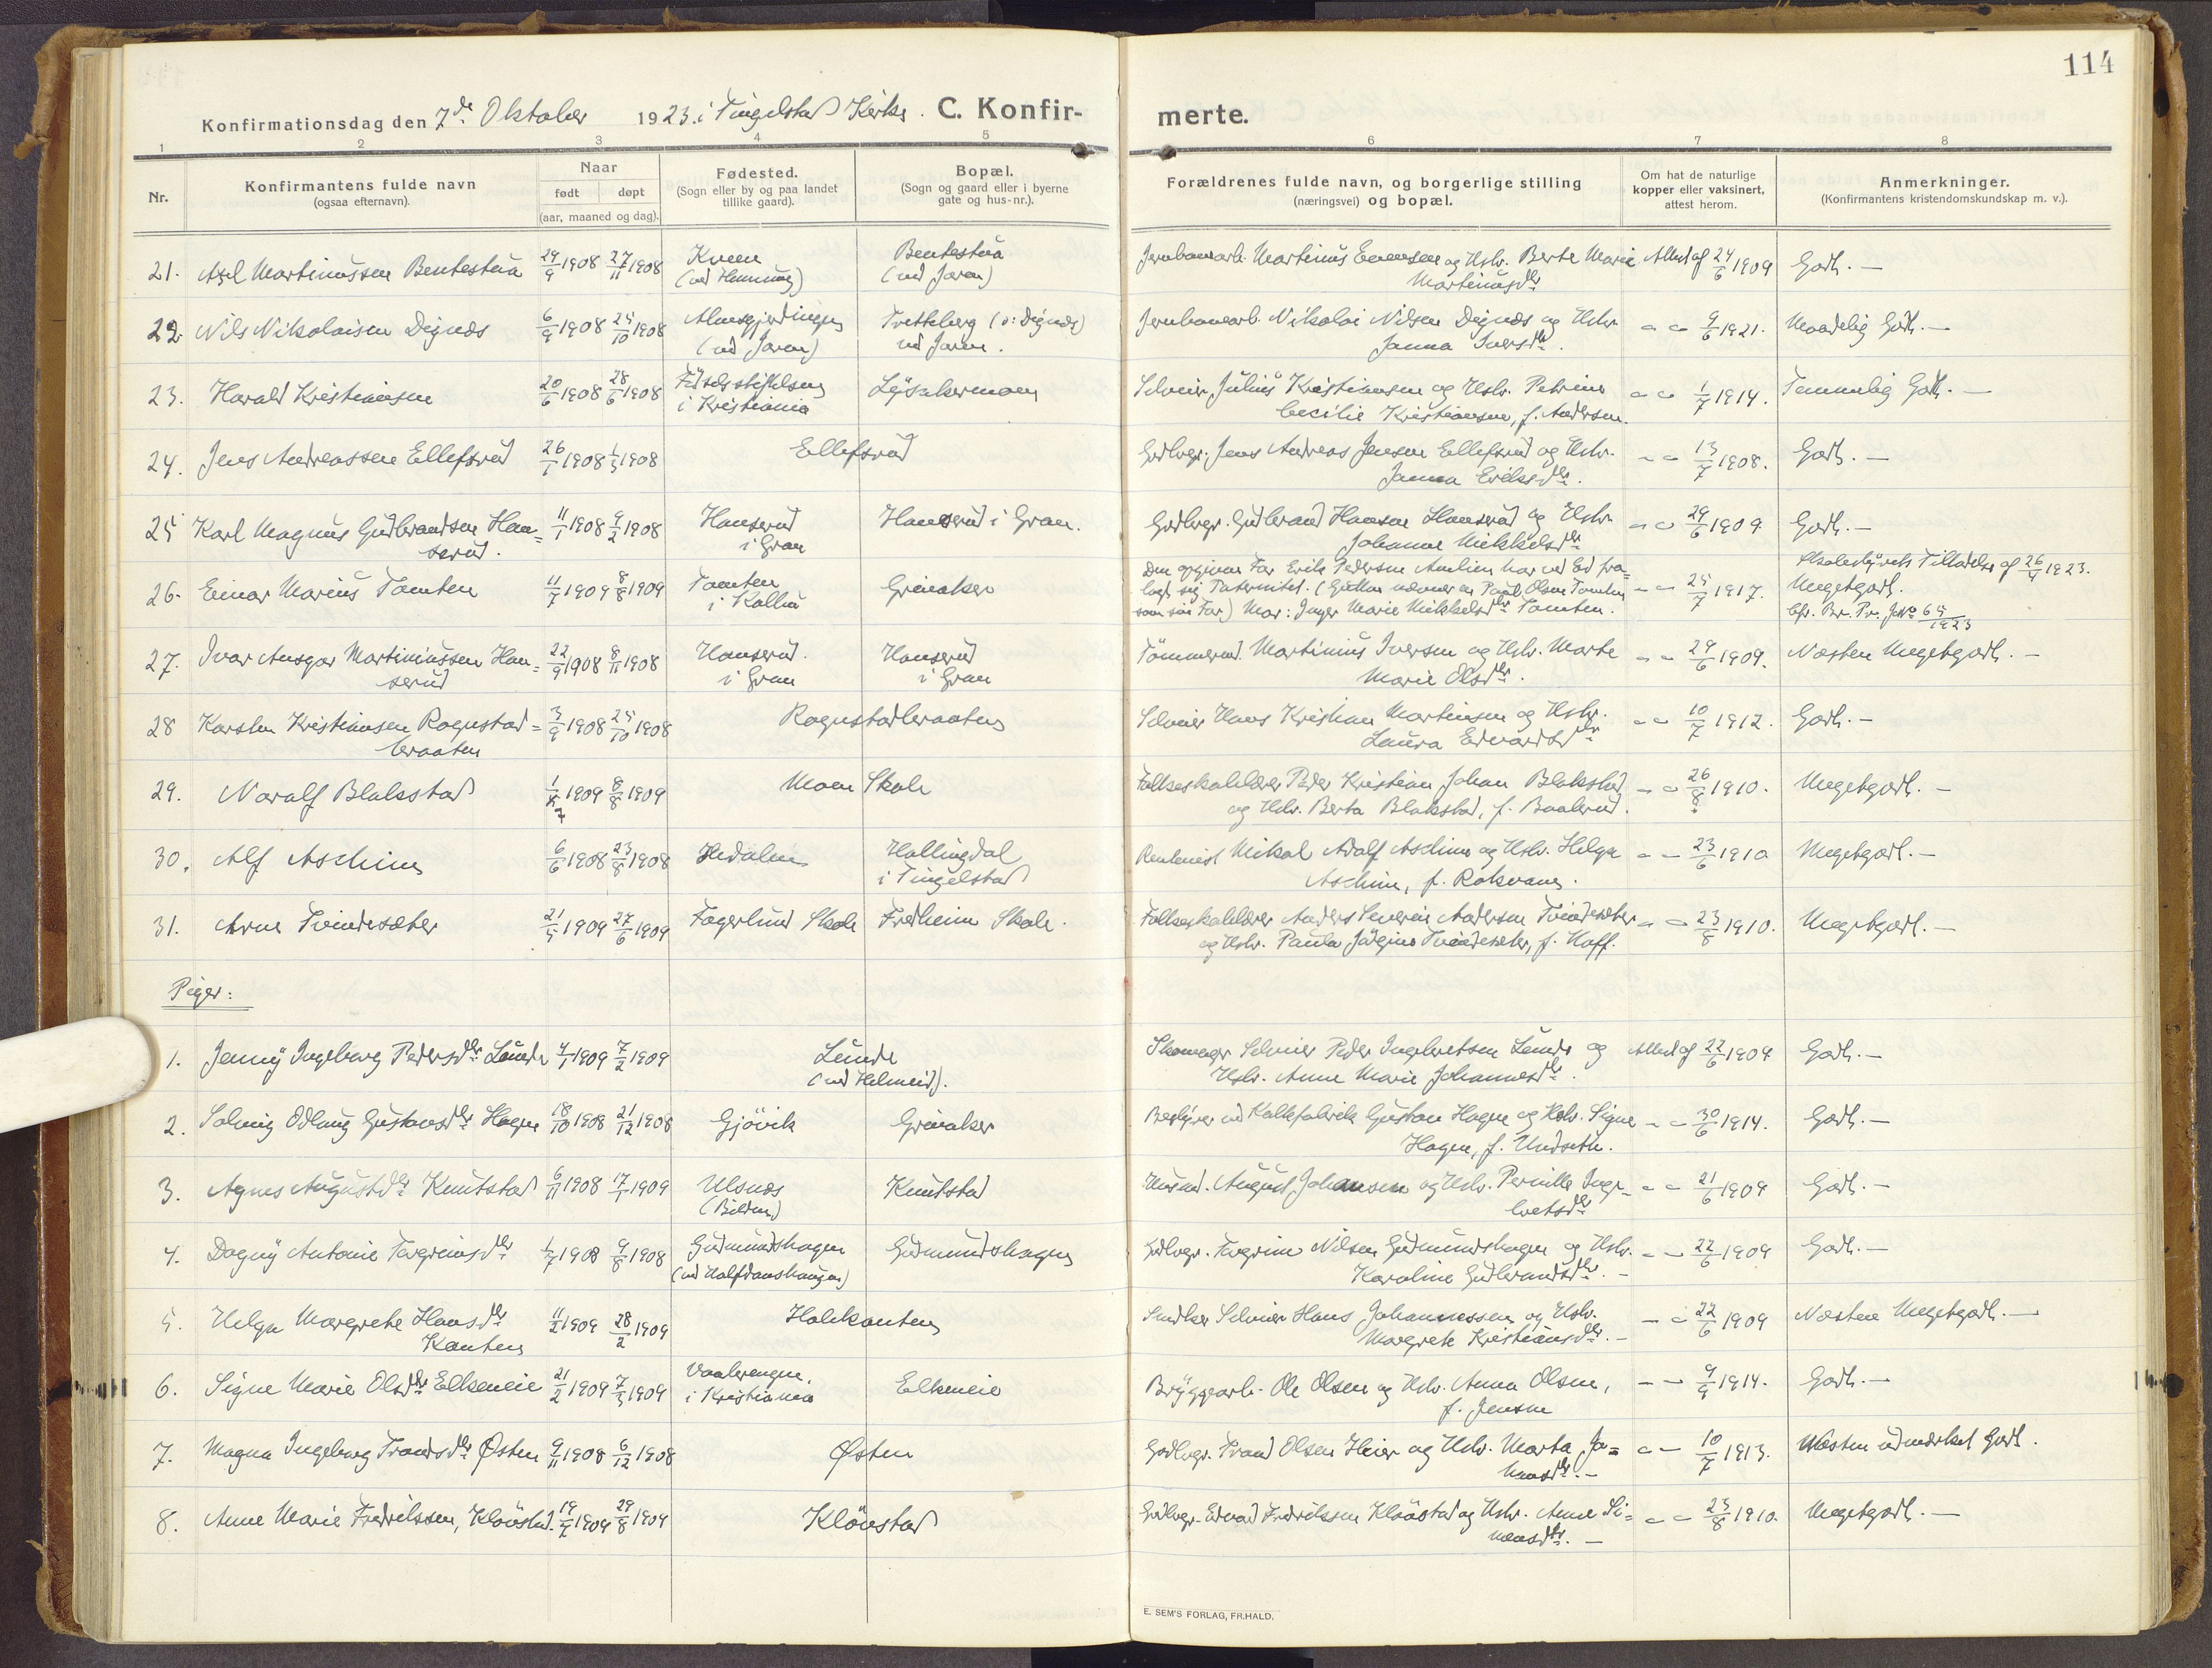 114
Konfirmationsdag den 7de Oktober 1923. i Tingelstad Kirke. C. Konfir-merte.
1 2 3 4 5 6 7 8
Nr.
Konfirmantens fulde navn
(ogsaa efternavn).
Naar
født døpt
(aar, maaned og dag).
Fødested.
(Sogn eller by og paa landet
tillike gaard).
Bopæl.
(Sogn og gaard eller i byerne
gate og hus-nr.).
Forældrenes fulde navn, og borgerlige stilling
(næringsvei) og bopæl.
Om hat de naturlige
kopper eller vaksinert,
attest herom.
Anmerkninger.
(Konfirmantens kristendomskundskap m. v.).
21. Axel Martinussen Bentestua 29/9 1908 27/11 1908 Bentestua Jernbanearb. Martinus Evensen og Hstr. Berte Marie Attest af 24/6 1909 Godt. —
(ved Jaren) Martinusdtr
22. Nils Nikolaisen Dignæs 6/9 1908 25/10 1908 Almsgjerdingen Jernbanearb. Nikolai Nilsen Dignæs og Hstr. - " - 9/6 1921. Maadelig Godt. —
(ved Jaren) ved Jaren. Janna Iversdtr.
23. Harald Kristiansen 20/6 1908 28/6 1908 Fødselsstiftelsen Lysakermoen Selveier Julius Kristiansen og Hstr. Petrine - " - 1/7 1914. Temmelig Godt. —
i Kristiania Cecilie Kristiansen, f. Andersen.
24. Jens Andreassen Ellefsrud 26/1 1908 1/3 1908 Ellefsrud Grdbrgr. Jens Andreas Jensen Ellefsrud og Hstr. - " - 13/7 1908. Godt. —
Janna Eriksdtr.
25 Karl Magnus Gudbrandsen Han= 11/1 1908 9/2 1908 Hanserud Hanserud i Gran. Grdbrgr. Gudbrand Hansen Hanserud og Hstr. - " - 29/6 1909 Godt. —
serud. i Gran Johanne Mikkelsdtr
26. Einar Marius Tomten 11/7 1909 8/8 1909 Tomten Grinaker Den opgivne Far Erik Pedersen Amlien har ved Ed fra= - " - 25/7 1917. Skolestyrets Tilladelse af 26/9 1923.
i Kolbu lagt sig Paternitet. (Gutten nævner en Paul Olsen Tomten Megetgodt.
som sin Far) Mor: Inger Marie Mikkelsdtr Tomten. Cfr. Br. Pr. J. No 65/1923
27. Ivar Ansgar Martiniussen Han= 22/9 1908 8/11 1908 Hanserud. Hanserud Tømmermd. Martinius Iversen og Hstr. Marte - " - 29/6 1909. Næsten Megetgodt. —
serud i Gran i Gran Marie Olsdtr.
28 Karsten Kristiansen Rognstad= 3/9 1908 25/10 1908 Rognstadbraaten Selveier Hans Kristian Martinsen og Hstr. - " - 10/7 1912. Godt. —
braaten Laura Edvardsdtr
29. Naralf Blakstad 1/7 1909 8/8 1909 Moen Skole Folkeskolelærer Peder Kristian Johan Blakstad - " - 26/8 1910. Megetgodt. —
og Hstr. Berta Blakstad, f. Baalerud.
30. Alf Aschim 6/6 1908 23/8 1908 Hedalen Hallingdal Rentenist Mikal Adolf Aschim og Hstr. Helga - " - 23/6 1910 Megetgodt. —
i Tingelstad Aschim, f. Rokvam.
31. Arne Tvindesæter 21/5 1909 27/6 1909 Fagerlund Skole Fredheim Skole. Folkeskolelærer Anders Severin Andersen Tvindesæter - " - 23/8 1910. Megetgodt. —
og Hstr. Paula Jörgine Tvindesæter, f. Hoff.
Piger:
1. Jenny Ingeborg Pedersdtr Lunde 4/1 1909 7/2 1909 Lunde Skomager Selveier Peder Ingebretsen Lunde og Attest af 22/6 1909 Godt. —
(ved Helmeid). Hstr. Anne Marie Johannesdtr.
2. Solveig Odlaug Gustavsdtr Hagen 18/10 1908 21/12 1908 Gjövik Grinaker Bestyrer ved Kalkfabrik Gustav Hagen og Hstr. Signe - " - 30/6 1914. Godt. —
Hagen, f. Undseth.
3. Agnes Augustdtr Knutstad 6/11 1908 17/1 1909 Ulsnæs Knutstad Husmd. August Johansen og Hstr. Pernille Inge= - " - 21/6 1909 Godt. —
(Bilden) bretsdtr
4. Dagny Antonie Torgrimsdtr 1/7 1908 9/8 1908 Gudmundshagen Gudmundshagen Grdbrgr. Torgrim Nilsen Gudmundshagen og Hstr. - " - 22/6 1909 Godt. —
(ved Halfdanshaugen) Karoline Gudbrandsdtr. —
5. Helga Margrete Hansdtr 11/2 1909 28/2 1909 Holekanten Snedker Selveier Hans Johannessen og Hstr. - " - 22/6 1909 Næsten Megetgodt. —
Kanten Margrete Kristiansdtr. —
6. Signe Marie Olsdtr Elkeneie 21/2 1909 7/3 1909 Vaalerengen, Elkeneie Bryggearb. Ole Olsen og Hstr. Anna Olsen, - " - 9/9 1914. Godt. —
i Kristiania f. Jensen
7. Magna Ingeborg Trondsdtr Østen 9/11 1908 6/12 1908 Østen Grdbrgr. Trond Olsen Heier og Hstr. Marta Jo= - " - 10/7 1913. Næsten udmerket Godt.
hansdtr. —
8. Anne Marie Fredriksen, Klöustad. 19/7 1909 29/8 1909 Klöustad Grdbrgr. Edvard Fredriksen Klöustad og Hstr. Anne Si= - " - 23/8 1910. Megetgodt. —
mensdtr. —
E. SEM'S FORLAG, FR.HALD.